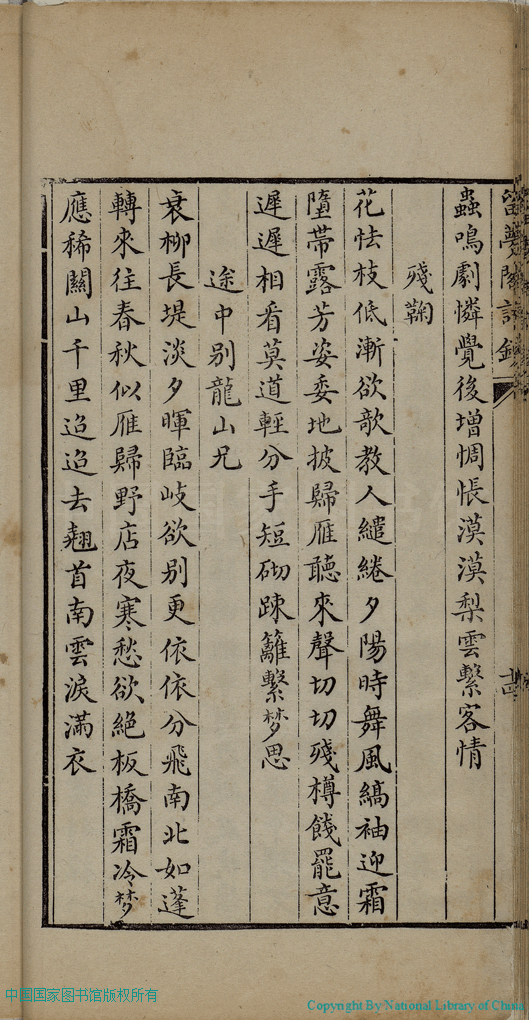 留夢隱詩鈔
蟲鳴劇憐覺後增惆悵漠漠梨雲繫客情
殘鞠
花怯枝低漸欲欹教人繾綣夕陽時舞風縞袖迎霜
墮蒂露芳姿委地披歸雁聽來聲切切殘樽餞罷意
遲遲相看莫道輕分手短砌踈籬繫梦思
途中别龍山兄
衰柳長堤淡夕暉臨岐欲别更依依分飛南北如蓬
轉來往春秋似雁歸野店夜寒愁欲絕板橋霜冷梦
應稀關山千里迢迢去翹首南雲淚滿衣
中国国家图书馆版权所有
Copyright By National Library of China